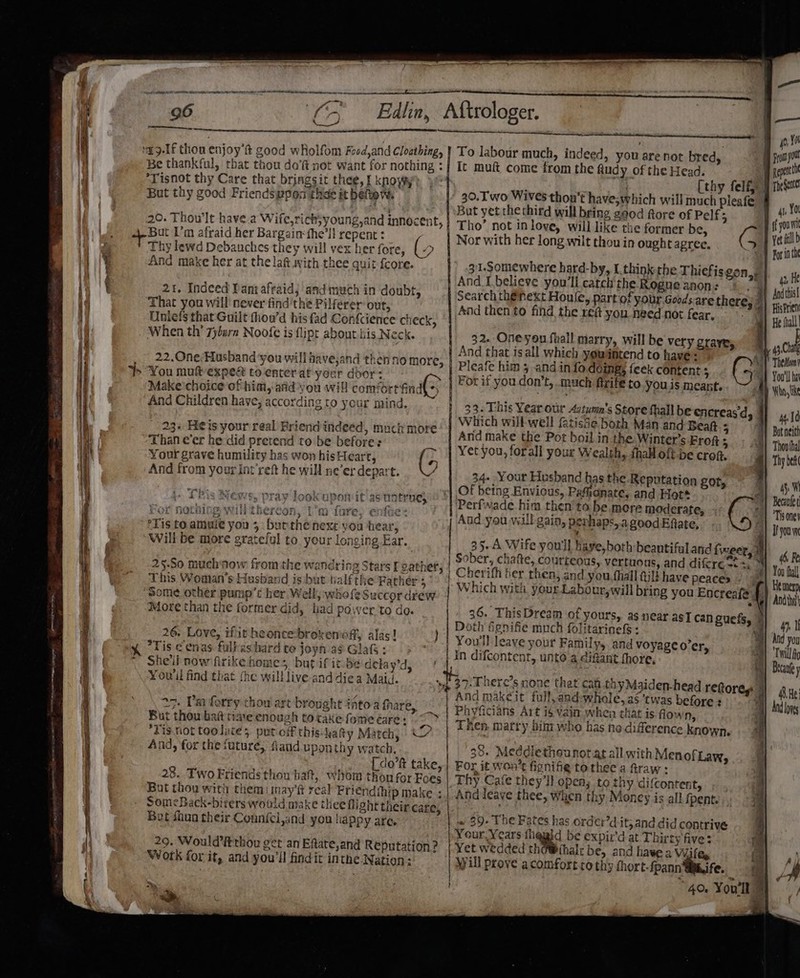 96 Edlin, Astrologer.
19. If thou enjoy'st good wholsom Food, and Cloathing,
Be thankful, that thou do'st not want for nothing:
'Tis not thy Care that brings it thee, I know,
But thy good Friends upon thee it bestows.
20. Thou'lt have a Wife, rich, young, and innocent,
But I'm afraid her Bargain she'll repent:
Thy lewd Debauches they will vex her sore,
And make her at the last with thee quit score.
21. Indeed I am afraid, and much in doubt,
That you will never find the Pilferer out,
Unless that Guilt shou'd his sad Conscience check,
When th' Tyburn Noose is slipt about his Neck.
22. One Husband you will have, and then no more,
You must expect to enter at your door:
Make choice of him, and you will comfort find
And Children have, according to your mind.
23. He is your real Friend indeed, much more
Than e'er he did pretend to be before:
Your grave humility has won his Heart,
And from your int'rest he will ne'er depart.
24. This News, pray look upon it as untrue,
For nothing will thereon, I'm sure, ensue:
'Tis to amuse you; but the next you hear,
Will be more grateful to your longing Ear.
25. So much now from the wandring Stars I gather,
This Woman's Husband is but half the Father;
Some other pump't her Well, whose Succor drew
More than the former did, had power to do.
26. Love, if it be once broken off, alas!
'Tis e'en as full as hard to joyn as Glass:
She'll now strike home; but if it be delay'd,
You'd find that she will live and die a Maid.
27. I'm sorry thou art brought into a snare,
But thou hast time enough to take some care:
'Tis not too late; put off this hasty Match,
And, for the future, stand upon thy watch.
[do'st take,
28. Two Friends thou hast, whom thou for Foes
But thou with them may'st real Friendship make:
Some Back-biters would make thee slight their care,
But shun their Counsel, and you happy are.
29. Would'st thou get an Estate, and Reputation?
Work for it, and you'll find it in the Nation:
To labour much, indeed, you are not bred,
It must come from the study of the Head.
[thy self
30. Two Wives thou't have, which will much please
But yet the third will bring good store of Pelf;
Tho' not in love, will like the former be,
Nor with her long wilt thou in ought agree.
31. Somewhere hard-by, I think the Thief is gon,
And I believe you'll catch the Rogue anon:
Search the next House, part of your Goods are there,
And then to find the rest you need not fear.
32. One you shall marry, will be very grave,
And that is all which you intend to have:
Please him; and in so doing, seek content;
For if you don't, much strife to you is meant.
33. This Year our Autumn's Store shall be encreas'd,
Which will well satisfie both Man and Beast;
And make the Pot boil in the Winter's Frost;
Yet you, for all your Wealth, shall oft be crost.
34. Your Husband has the Reputation got,
Of being Envious, Passionate, and Hot:
Perswade him then to be more moderate,
And you will gain, perhaps, a good Estate,
35. A Wife you'll have, both beautiful and sweet,
Sober, chaste, courteous, vertuous, and
Cherish her then, and you shall still have peace;
Which with your Labour, will bring you Encrease.
36. This Dream of yours, as near as I can guess,
Doth signifie much solitariness:
You'll leave your Family, and voyage o'er,
In discontent, unto a distant shore.
37. There's none that can thy Maiden-head restore,
And make it full, and whole, as 'twas before:
Physicians Art is vain when that is flown,
Then marry him who has no difference known.
38. Meddle thou not at all with Men of Law,
For it won't signifie to thee a straw:
Thy Case they'll open, to thy discontent,
And leave thee, when thy Money is all spent.
39. The Fates has order'd it, and did contrive
Your Years should be expir'd at Thirty five:
Yet wedded thou shalt be, and have a Wife,
Will prove a comfort to thy short-spann'd Life.
40. You'll